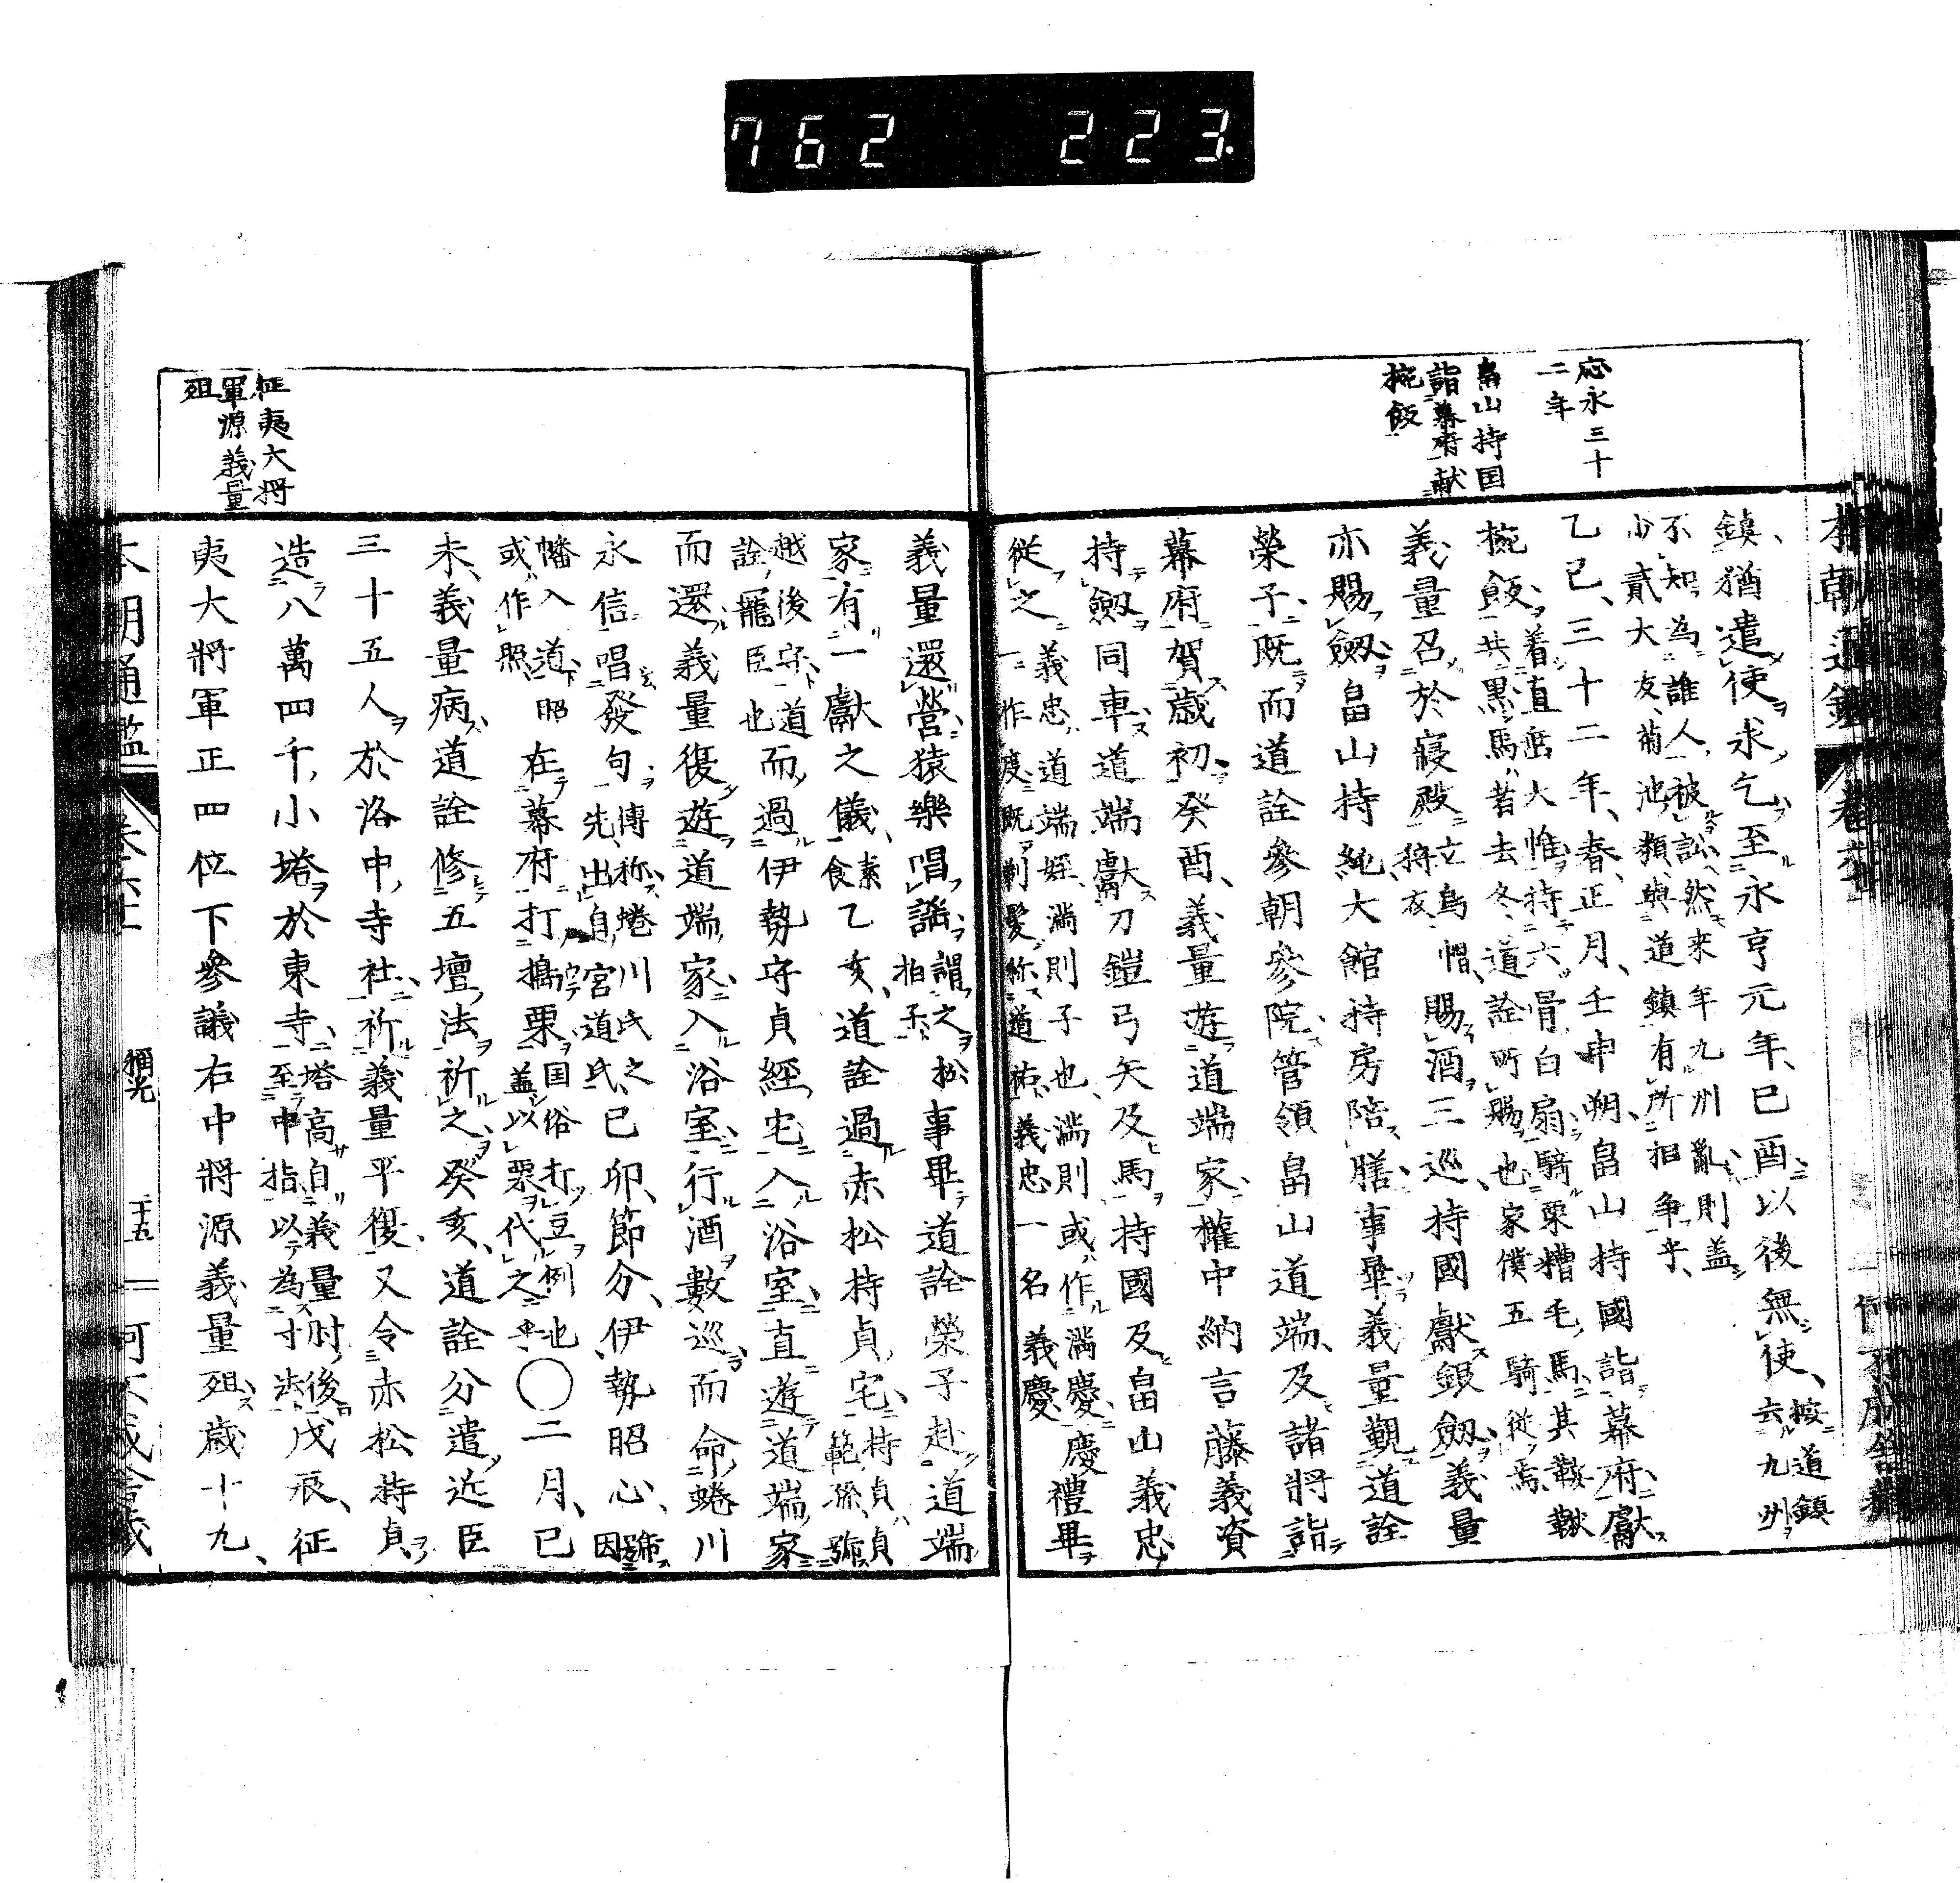 762 223.
応永三十
二年
畠山持国
詣幕府献
椀飯
鎮、猶遣使求乞至永亨元年、已酉以後無使、按道鎮
云九州
不知為誰人、被訟、然来年九州亂則盖
少貳大友、菊池類與道鎮有所相争乎、
乙已、三十二年、春、正月、壬申朔、畠山持國詣幕府、獻
椀飯、着直垂大惟持六骨白扇騎栗糟毛馬其鞍
共黒馬者去冬、道詮所賜也家僕五騎従焉
義量召於寢殿立烏帽、狩衣、賜酒三巡、持國獻銀劔義量
亦賜劔畠山持純大館持房陪膳、事畢義量覲道詮
榮子、既而道詮參朝參院、管領畠山道端、及諸將詣
幕府賀歲初、癸酉、義量遊道端家、權中納言藤義資
持劔同車、道端獻刀鎧弓矢及馬持國及畠山義忠
從之、義忠、道端姪、満則子也、満則或作満慶、慶
一作慶、既剃髪、称道祐、義忠一名義慶
禮畢
義量還營、猿樂唱謡謂之松
拍子、事畢道詮榮子赴道端
家有一獻之儀、素
食乙亥、道詮過赤松持貞宅、持貞貞
範孫、號
越後守道
詮寵臣也而過伊勢守貞經宅、入浴室、直遊道端家
而還義量復遊道端家、入浴室、行酒數巡、而命蜷川
永信唱發句、傳称、蜷川氏之
先、出自宮道氏、已卯、節分、伊勢昭心、號
因
幡入道、昭
或作照在幕府打搗栗国俗打豆例也
盖以栗代之乎、〇二月、已
未、義量病、道詮修五壇法祈之、癸亥、道詮分遣近臣
三十五人於洛中寺社、祈義量平復、又令赤松持貞
造八萬四千小塔於東寺、塔高自義量肘後
至中指、以為寸法戊辰、征
夷大將軍正四位下參議右中將源義量殂歳十九、
征夷大将
軍源義量
殂